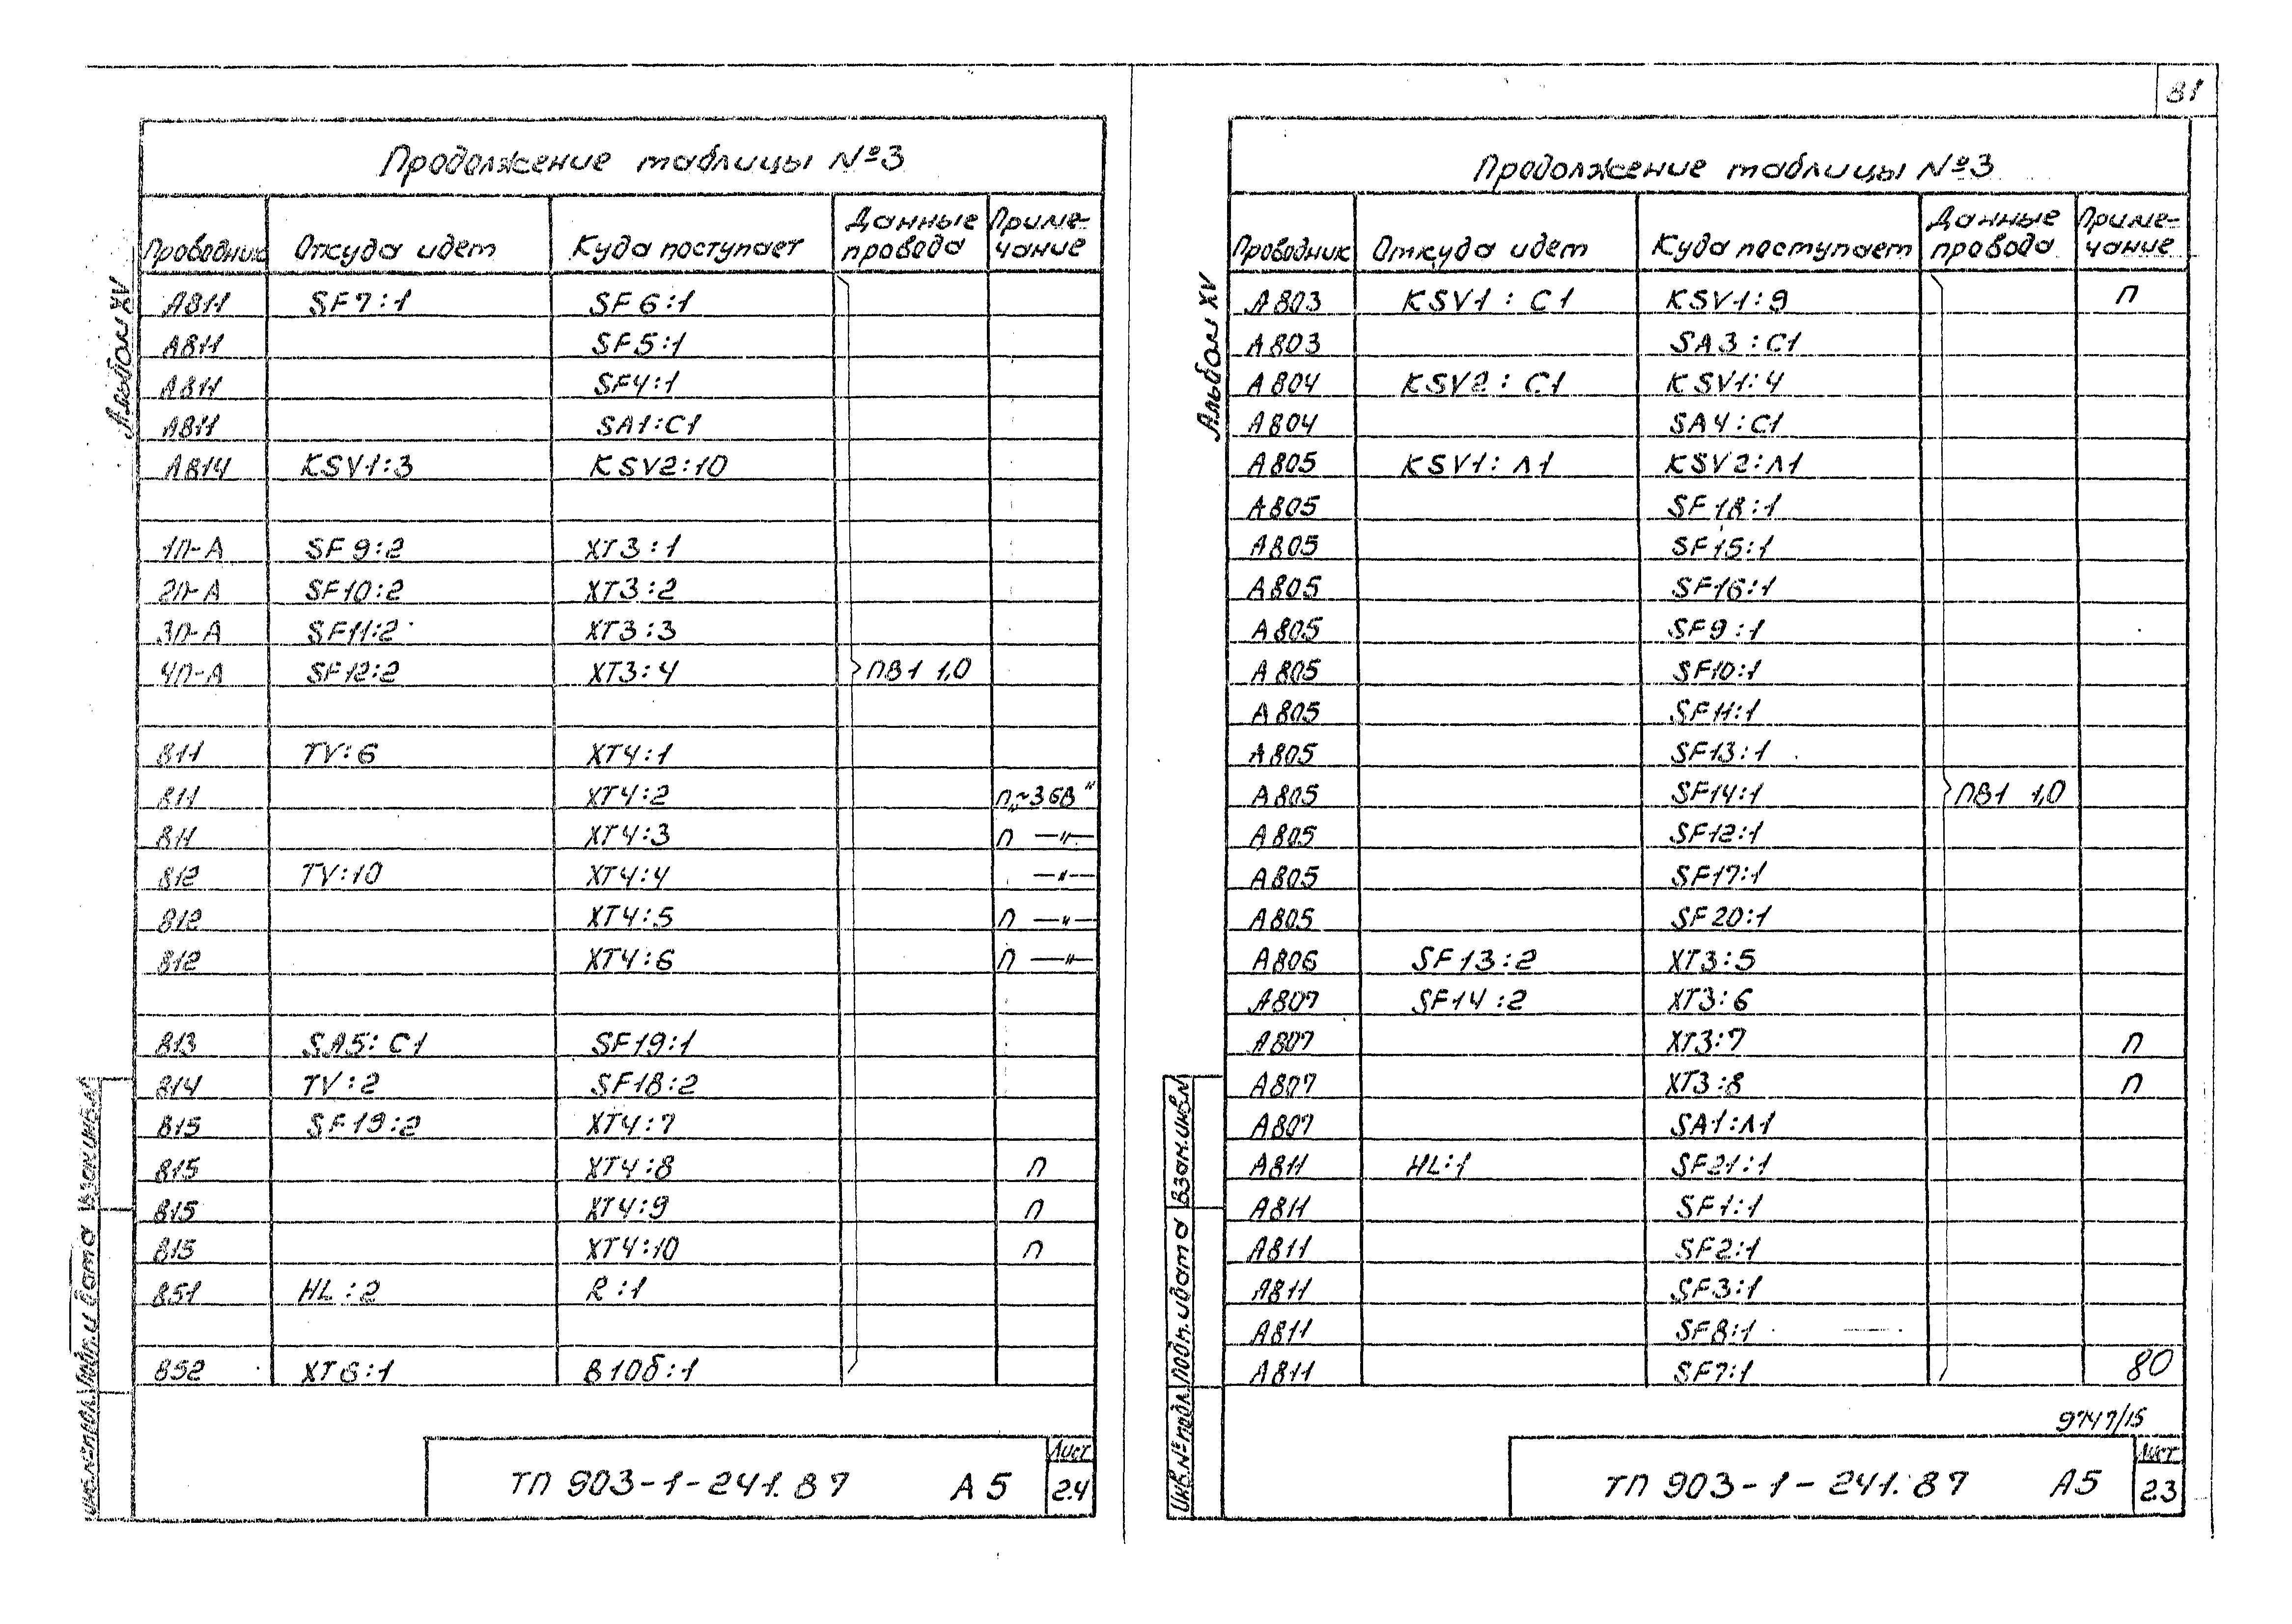 81
Продолжение таблицы №3
Проводник Откуда идет Куда поступает Данные провода Приме-чание
А811 SF7:1 SF6:1
А811 SF5:1
А811 SF4:1
А811 SA1:C1
А814 KSV1:3 KSV2:10
1П-А SF9:2 XT3:1
2П-А SF10:2 XT3:2
3П-А SF11:2 XT3:3
4П-А SF12:2 XT3:4 ПВ1 1,0
811 TV:6 XT4:1
811 XT4:2 П „~36В"
811 XT4:3 П —"—
812 TV:10 XT4:4 —"—
812 XT4:5 П —"—
812 XT4:6 П —"—
813 SA5:C1 SF19:1
814 TV:2 SF18:2
815 SF19:2 XT4:7
815 XT4:8 П
815 XT4:9 П
815 XT4:10 П
851 HL:2 R:1
852 XT6:1 В10б:1
ТП 903-1-241.87 А5
Лист
2.4
Альбом XV
Инв.№ подл. Подп. и дата Взам.инв.N
Продолжение таблицы №3
Проводник Откуда идет Куда поступает Данные провода Приме-чание
А803 KSV1:C1 KSV1:9 П
А803 SA3:C1
А804 KSV2:C1 KSV1:4
А804 SA4:C1
А805 KSV1:Л1 KSV2:Л1
А805 SF18:1
А805 SF15:1
А805 SF16:1
А805 SF9:1
А805 SF10:1
А805 SF11:1
А805 SF13:1
А805 SF14:1 ПВ1 1,0
А805 SF12:1
А805 SF17:1
А805 SF20:1
А806 SF13:2 XT3:5
А807 SF14:2 XT3:6
А807 XT3:7 П
А807 XT3:8 П
А807 SA1:Л1
А811 HL:1 SF21:1
А811 SF1:1
А811 SF2:1
А811 SF3:1
А811 SF8:1
А811 SF7:1
80
9747/15
ТП 903-1-241.87 А5
Лист
2.3
Альбом XV
Инв.№ подл. Подп. и дата Взам.инв.N